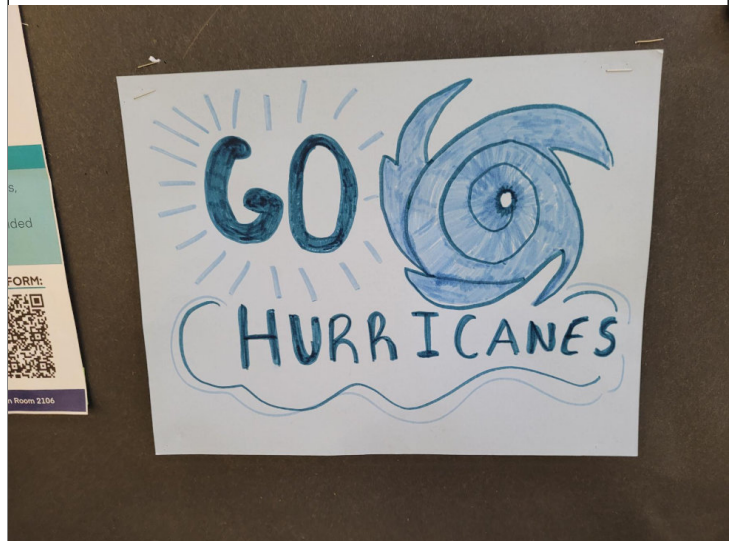 GO
HURRICANES
s,
ided
FORM:
n Room 2106